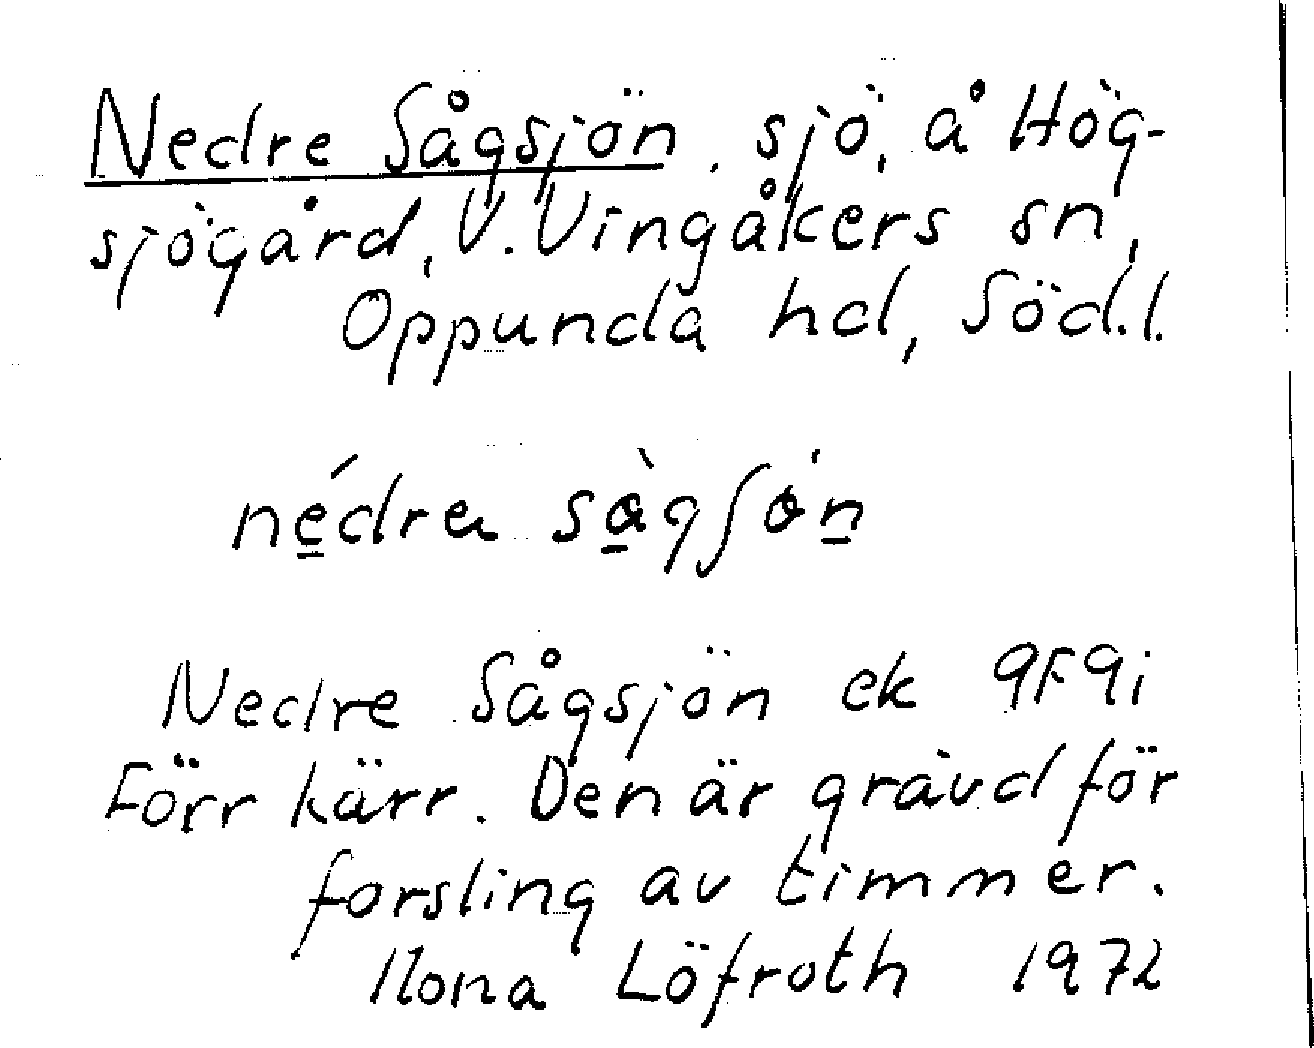 Nedre Sågsjön, sjö, å Hög-
sjögård, V. Vingåkers sn,
Oppunda hd, Söd.l.
né̲drɐ sà̲gʃȯn̲
Nedre Sågsjön ek 9F9i
Förr kärr. Den är grävd för
forsling av timmer.
Ilona Löfroth 1972